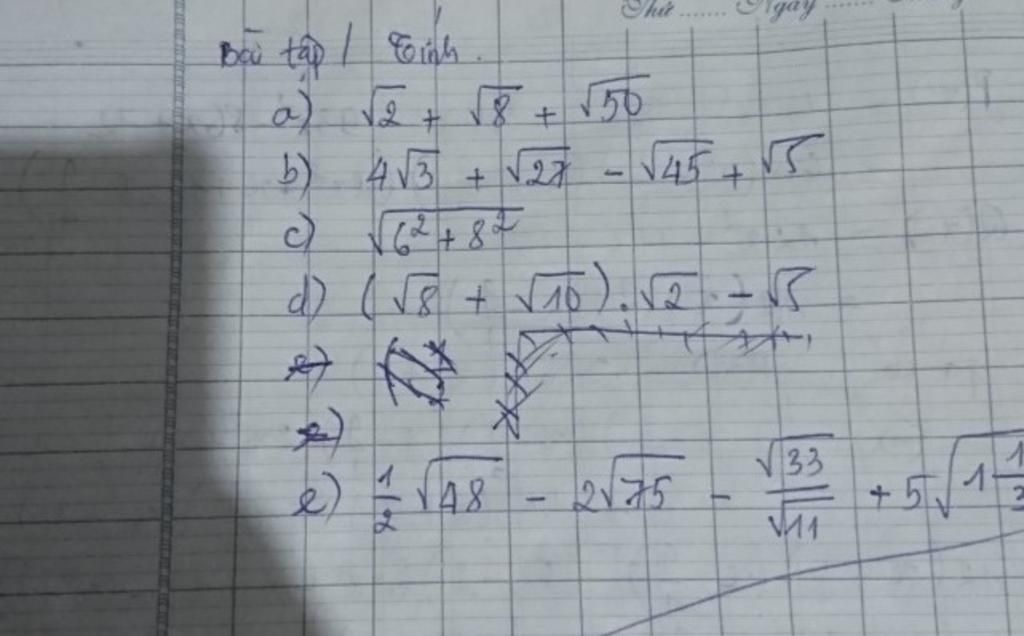 Thứ ....... Ngày .......
Bài tập 1 Tính.
a) √2 + √8 + √50
b) 4√3 + √27 - √45 + √5
c) √(6² + 8²)
d) (√8 + √10).√2 - √5
e)
e)
e) 1/2 √48 - 2√75 - √33/√11 + 5√(1 1/3)